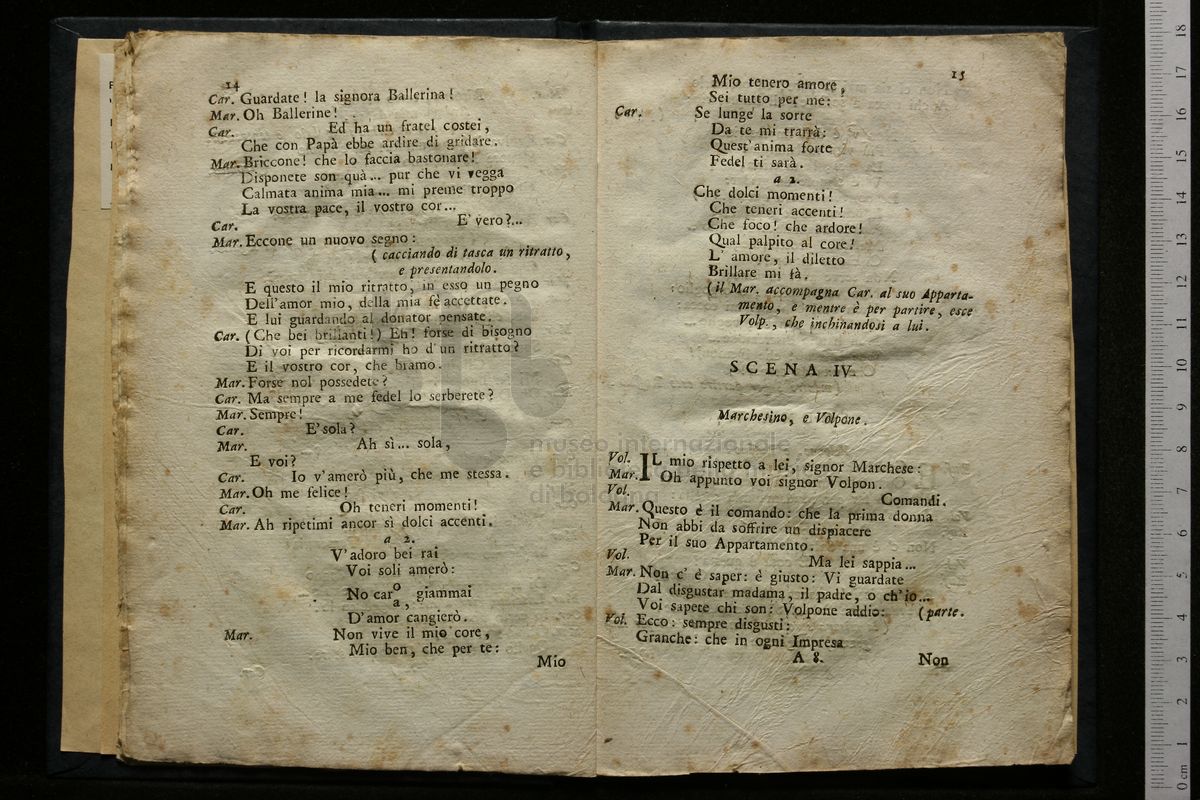 14
Car. Guardate! la signora Ballerina!
Mar. Oh Ballerine!
Car. Ed ha un fratel costei,
Che con Papà ebbe ardire di gridare.
Mar. Briccone! che lo faccia bastonare!
Disponete son quà... pur che vi vegga
Calmata anima mia... mi preme troppo
La vostra pace, il vostro cor...
Car. E' vero?...
Mar. Eccone un nuovo segno:
( cacciando di tasca un ritratto,
e presentandolo.
E questo il mio ritratto, in esso un pegno
Dell'amor mio, della mia fè accettate.
E lui guardando al donator pensate.
Car. (Che bei brillanti!) Eh! forse di bisogno
Di voi per ricordarmi ho d'un ritratto?
E il vostro cor, che bramo.
Mar. Forse nol possedete?
Car. Ma sempre a me fedel lo serberete?
Mar. Sempre!
Car. E' sola?
Mar. Ah sì... sola,
E voi?
Car. Io v'amerò più, che me stessa.
Mar. Oh me felice!
Car. Oh teneri momenti!
Mar. Ah ripetimi ancor sì dolci accenti.
a 2.
V'adoro bei rai
Voi soli amerò:
No car o/a, giammai
D'amor cangierò.
Mar. Non vive il mio core,
Mio ben, che per te:
Mio
15
Mio tenero amore,
Sei tutto per me:
Car. Se lunge la sorte
Da te mi trarrà:
Quest'anima forte
Fedel ti sarà.
a 2.
Che dolci momenti!
Che teneri accenti!
Che foco! che ardore!
Qual palpito al core!
L' amore, il diletto
Brillare mi fà.
(il Mar. accompagna Car. al suo Apparta-
mento, e mentre è per partire, esce
Volp., che inchinandosi a lui.
SCENA IV.
Marchesino, e Volpone.
Vol. IL mio rispetto a lei, signor Marchese:
Mar. Oh appunto voi signor Volpon.
Vol. Comandi.
Mar. Questo è il comando: che la prima donna
Non abbi da soffrire un dispiacere
Per il suo Appartamento.
Vol. Ma lei sappia...
Mar. Non c' è saper: è giusto: Vi guardate
Dal disgustar madama, il padre, o ch'io...
Voi sapete chi son: Volpone addio: (parte.
Vol. Ecco: sempre disgusti:
Granche: che in ogni Impresa
A 8. Non
museo internazionale
e biblioteca
di bologna
0 cm 1 2 3 4 5 6 7 8 9 10 11 12 13 14 15 16 17 18